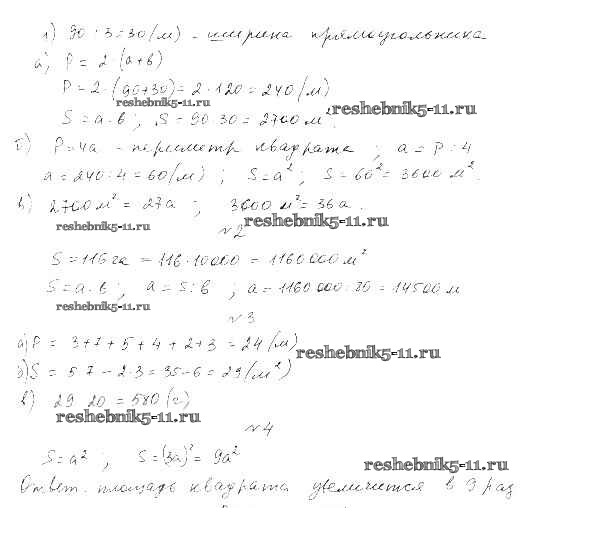 1) 90 : 3 = 30 (м) - ширина прямоугольника
а) P = 2 · (a+b)
P = 2 · (90+30) = 2 · 120 = 240 (м)
reshebnik5-11.ru
reshebnik5-11.ru
S = a · b ; S = 90 · 30 = 2700 м²
б) P = 4a - периметр квадрата ; a = P : 4
a = 240 : 4 = 60 (м) ; S = a² ; S = 60² = 3600 м².
в) 2700 м² = 27 а ; 3600 м² = 36 а.
reshebnik5-11.ru
reshebnik5-11.ru
№2
S = 116 га = 116 · 10000 = 1160000 м²
S = a · b ; a = S : b ; a = 1160000 : 80 = 14500 м
reshebnik5-11.ru
№3
а) P = 3 + 7 + 5 + 4 + 2 + 3 = 24 (м)
reshebnik5-11.ru
б) S = 5 7 - 2 · 3 = 35 - 6 = 29 (м²)
в) 29 20 = 580 (г)
reshebnik5-11.ru
№4
S = a² ; S = (3a)² = 9a²
reshebnik5-11.ru
Ответ. площадь квадрата увеличится в 9 раз